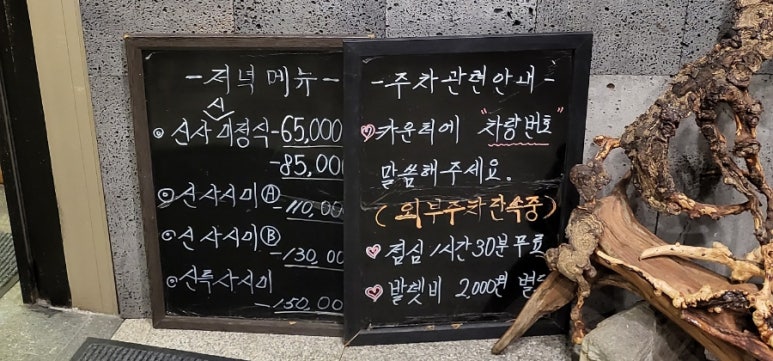 -저녁메뉴-
신사시미정식-65,000
-85,000
신사시미Ⓐ
-110,000
신사시미Ⓑ
-130,000
신특사시미
-150,000
-주차관련안내-
♡ 카운터에 "차량번호"
말씀해주세요.
(외부주차단속중)
♡ 점심 1시간30분 무료
♡ 발렛비 2,000원 별도